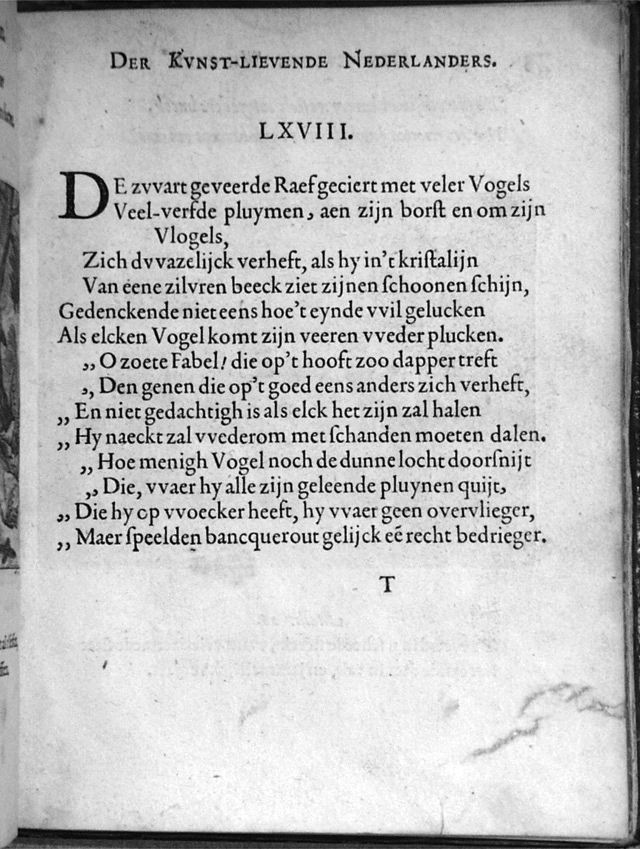 DER KVNST-LIEVENDE NEDERLANDERS.
LXVIII.
DE zvvart geveerde Raef geciert met veler Vogels
Veel-verfde pluymen, aen zijn borſt en om zijn
Vlogels,
Zich dvvazelijck verheft, als hy in't kriſtalijn
Van eene zilvren beeck ziet zijnen ſchoonen ſchijn,
Gedenckende niet eens hoe't eynde vvil gelucken
Als elcken Vogel komt zijn veeren vveder plucken.
,, O zoete Fabel! die op't hooft zoo dapper treft
,, Den genen die op't goed eens anders zich verheft,
,, En niet gedachtigh is als elck het zijn zal halen
,, Hy naeckt zal vvederom met ſchanden moeten dalen.
,, Hoe menigh Vogel noch de dunne locht doorſnijt
,, Die, vvaer hy alle zijn geleende pluynen quijt,
,, Die hy op vvoecker heeft, hy vvaer geen overvlieger,
,, Maer ſpeelden bancquerout gelijck eẽ recht bedrieger.
T